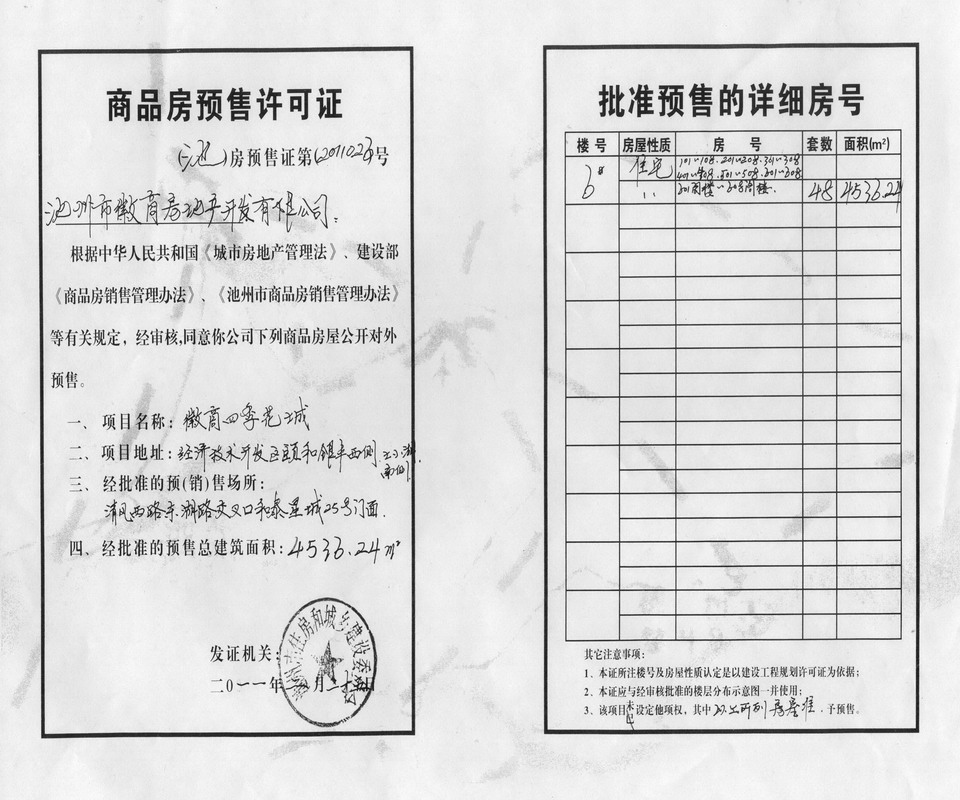 商品房预售许可证
(池)房预售证第(2011023)号
池州市徽商房地产开发有限公司:
根据中华人民共和国《城市房地产管理法》、建设部
《商品房销售管理办法》、《池州市商品房销售管理办法》
等有关规定，经审核,同意你公司下列商品房屋公开对外
预售。
一、项目名称:徽商四季花城
二、项目地址:经济技术开发区颐和银丰西侧
南侧
三、经批准的预(销)售场所:
清风西路东湖路交叉口和泰星城25号门面
四、经批准的预售总建筑面积:4536.24m²
发证机关:
住房和城乡建设委
二0一一年
批准预售的详细房号
楼号 房屋性质 房号 套数 面积(m²)
6# 住宅 101~108.201~208.301~308
401~408.501~508.601~608
〃 601阁楼~608阁楼. 48 4536.24
其它注意事项:
1、本证所注楼号及房屋性质认定是以建设工程规划许可证为依据;
2、本证应与经审核批准的楼层分布示意图一并使用;
3、该项目未设定他项权，其中以上所列房屋准，予预售。